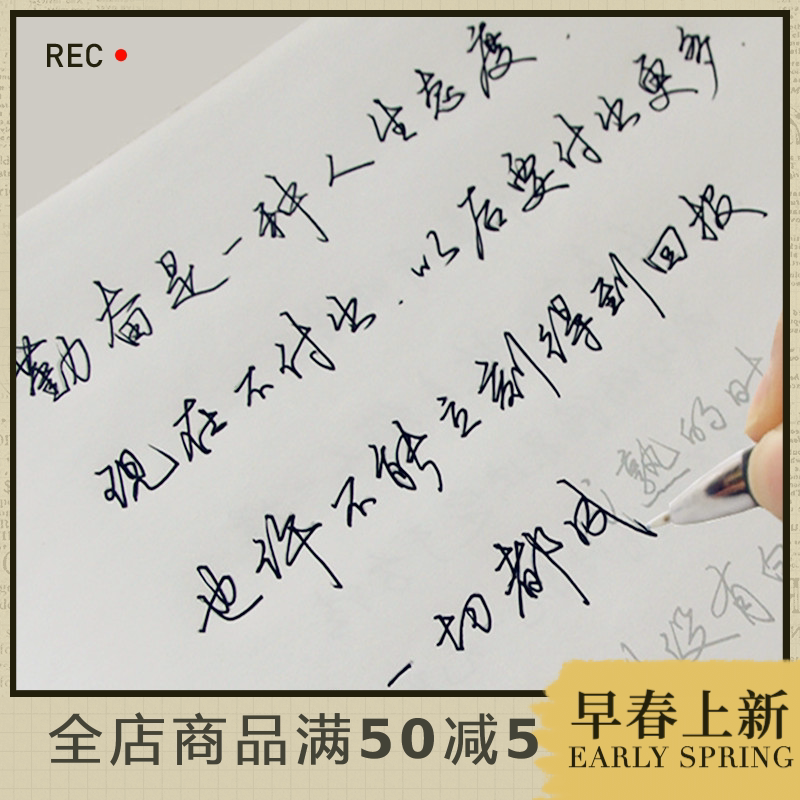 REC
勤奋是一种人生态度
现在不付出.以后要付出更多
也许不能立刻得到回报
一切都成熟的时
没有白
全店商品满50减5
早春上新
EARLY SPRING